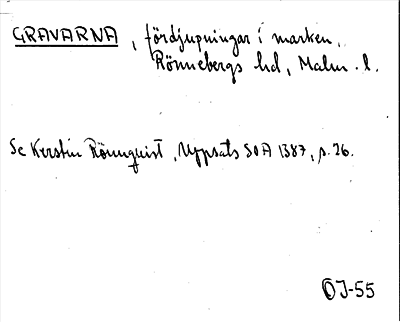 GRAVARNA, fördjupningar i marken.
Rönnebergs hd, Malm. l.
Se Kerstin Rönnquist, Uppsats SOA 1387, s. 26.
OJ-55